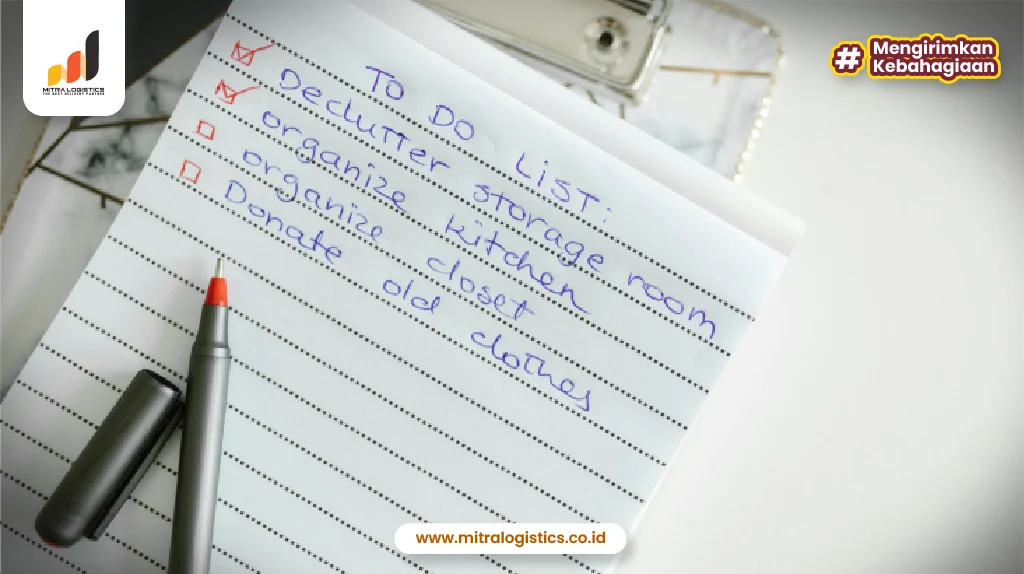 MITRA LOGISTICS
THE BEST DELIVERY PARTNER
# Mengirimkan
Kebahagiaan
TO DO LIST:
Declutter storage room
organize kitchen
organize closet
Donate old clothes
www.mitralogistics.co.id